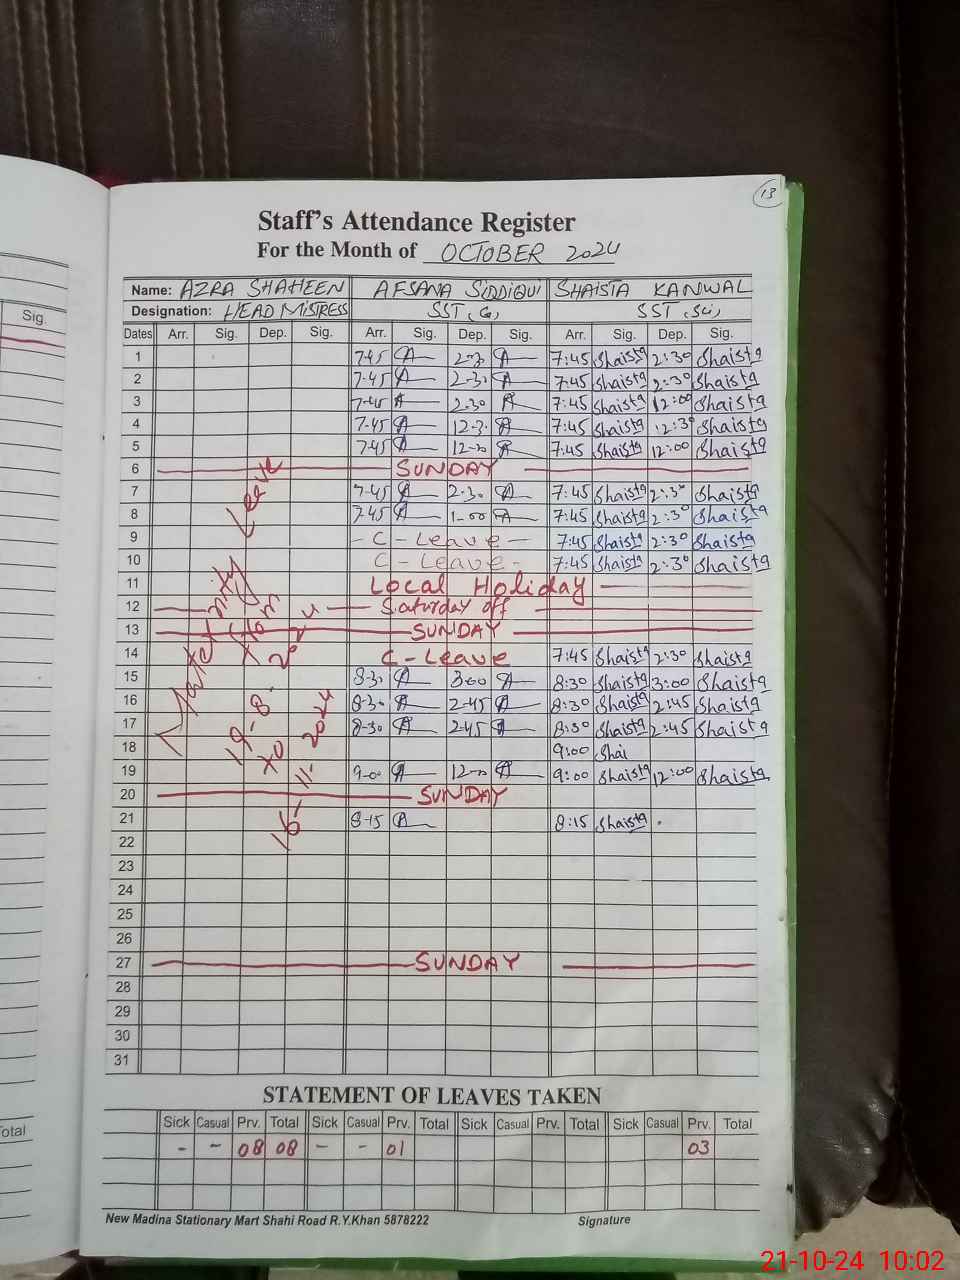 13
Staff's Attendance Register
For the Month of OCTOBER 2024
Name: AZRA SHAHEEN AFSANA SIDDIQUI SHAISTA KANWAL
Designation: HEAD MISTRESS SST, SST, (Sci)
Sig.
Dates Arr. Sig. Dep. Sig. Arr. Sig. Dep. Sig. Arr. Sig. Dep. Sig.
1 7-45 A 2-30 A 7:45 Shaista 2:30 Shaista
2 7-45 A 2-30 A 7:45 Shaista 2:30 Shaista
3 7-45 A 2-30 A 7:45 Shaista 12:00 Shaista
4 7-45 A 12-30 A 7:45 Shaista 12:30 Shaista
5 7-45 A 12-00 A 7:45 Shaista 12:00 Shaista
6 SUNDAY
7 7-45 A 2-30 A 7:45 Shaista 2:30 Shaista
8 7-45 A 1-00 A 7:45 Shaista 2:30 Shaista
9 - C - Leave - 7:45 Shaista 2:30 Shaista
10 C - Leave - 7:45 Shaista 2:30 Shaista
11 Local Holiday
12 Saturday off
13 SUNDAY
14 C - Leave 7:45 Shaista 2:30 Shaista
15 8-30 A 3:00 A 8:30 Shaista 3:00 Shaista
16 8-30 A 2-45 A 8:30 Shaista 2:45 Shaista
17 8-30 A 2-45 A 8:30 Shaista 2:45 Shaista
18 9:00 Shai
19 9-00 A 12-00 A 9:00 Shaista 12:00 Shaista
20 SUNDAY
21 8-15 A 8:15 Shaista
22
23
24
25
26
27 SUNDAY
28
29
30
31
Maternity Leave
from
19-8-2024
to
16-11-2024
STATEMENT OF LEAVES TAKEN
Total
Sick Casual Prv. Total Sick Casual Prv. Total Sick Casual Prv. Total Sick Casual Prv. Total
- - 08 08 - - 01 03
New Madina Stationary Mart Shahi Road R.Y.Khan 5878222 Signature
21-10-24 10:02